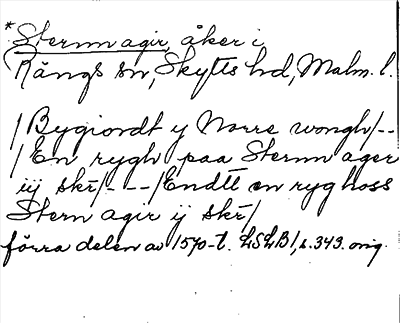 *Stermn agir, åker i
Rängs sn, Skytts hd, Malm. l.
/Bygiordt y Norre wongh/--
/En rygh paa Stermn ager
iij skr/---/Endtt en ryg hoss
Stern agir ij skr/
förra delen av 1570-t. LSLB1, s. 343. orig.